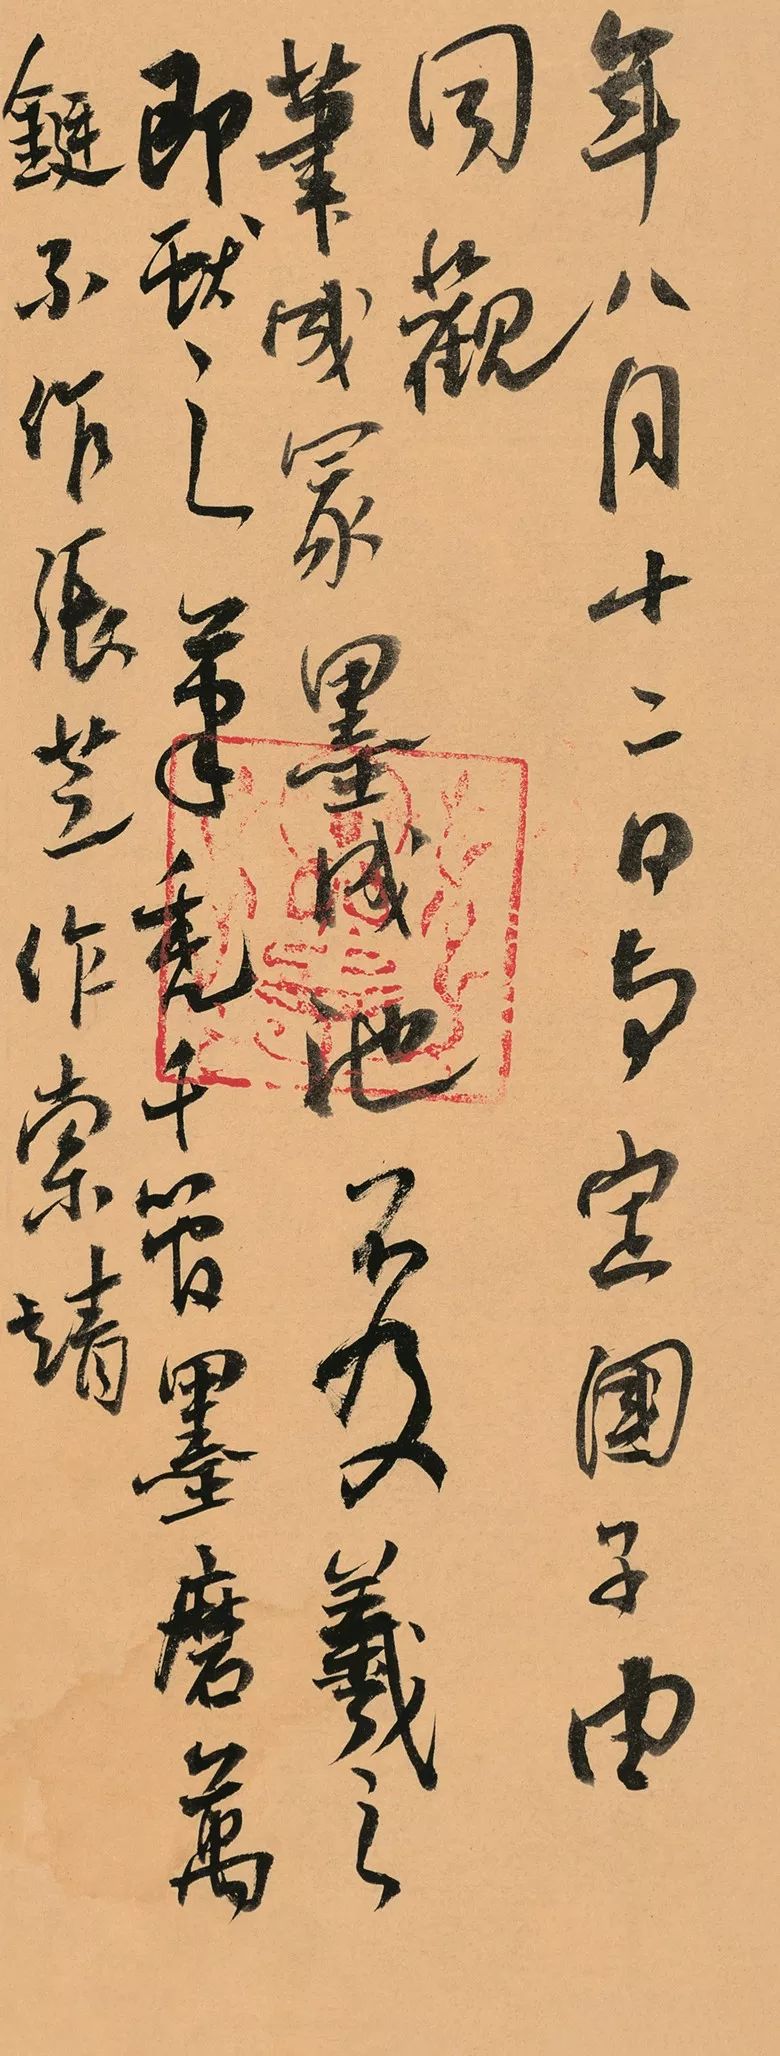 年八月十二日与定國子由
同觀
筆成冢墨成池不及羲之
即獻之筆禿千管墨磨萬
鋌不作張芝作索靖